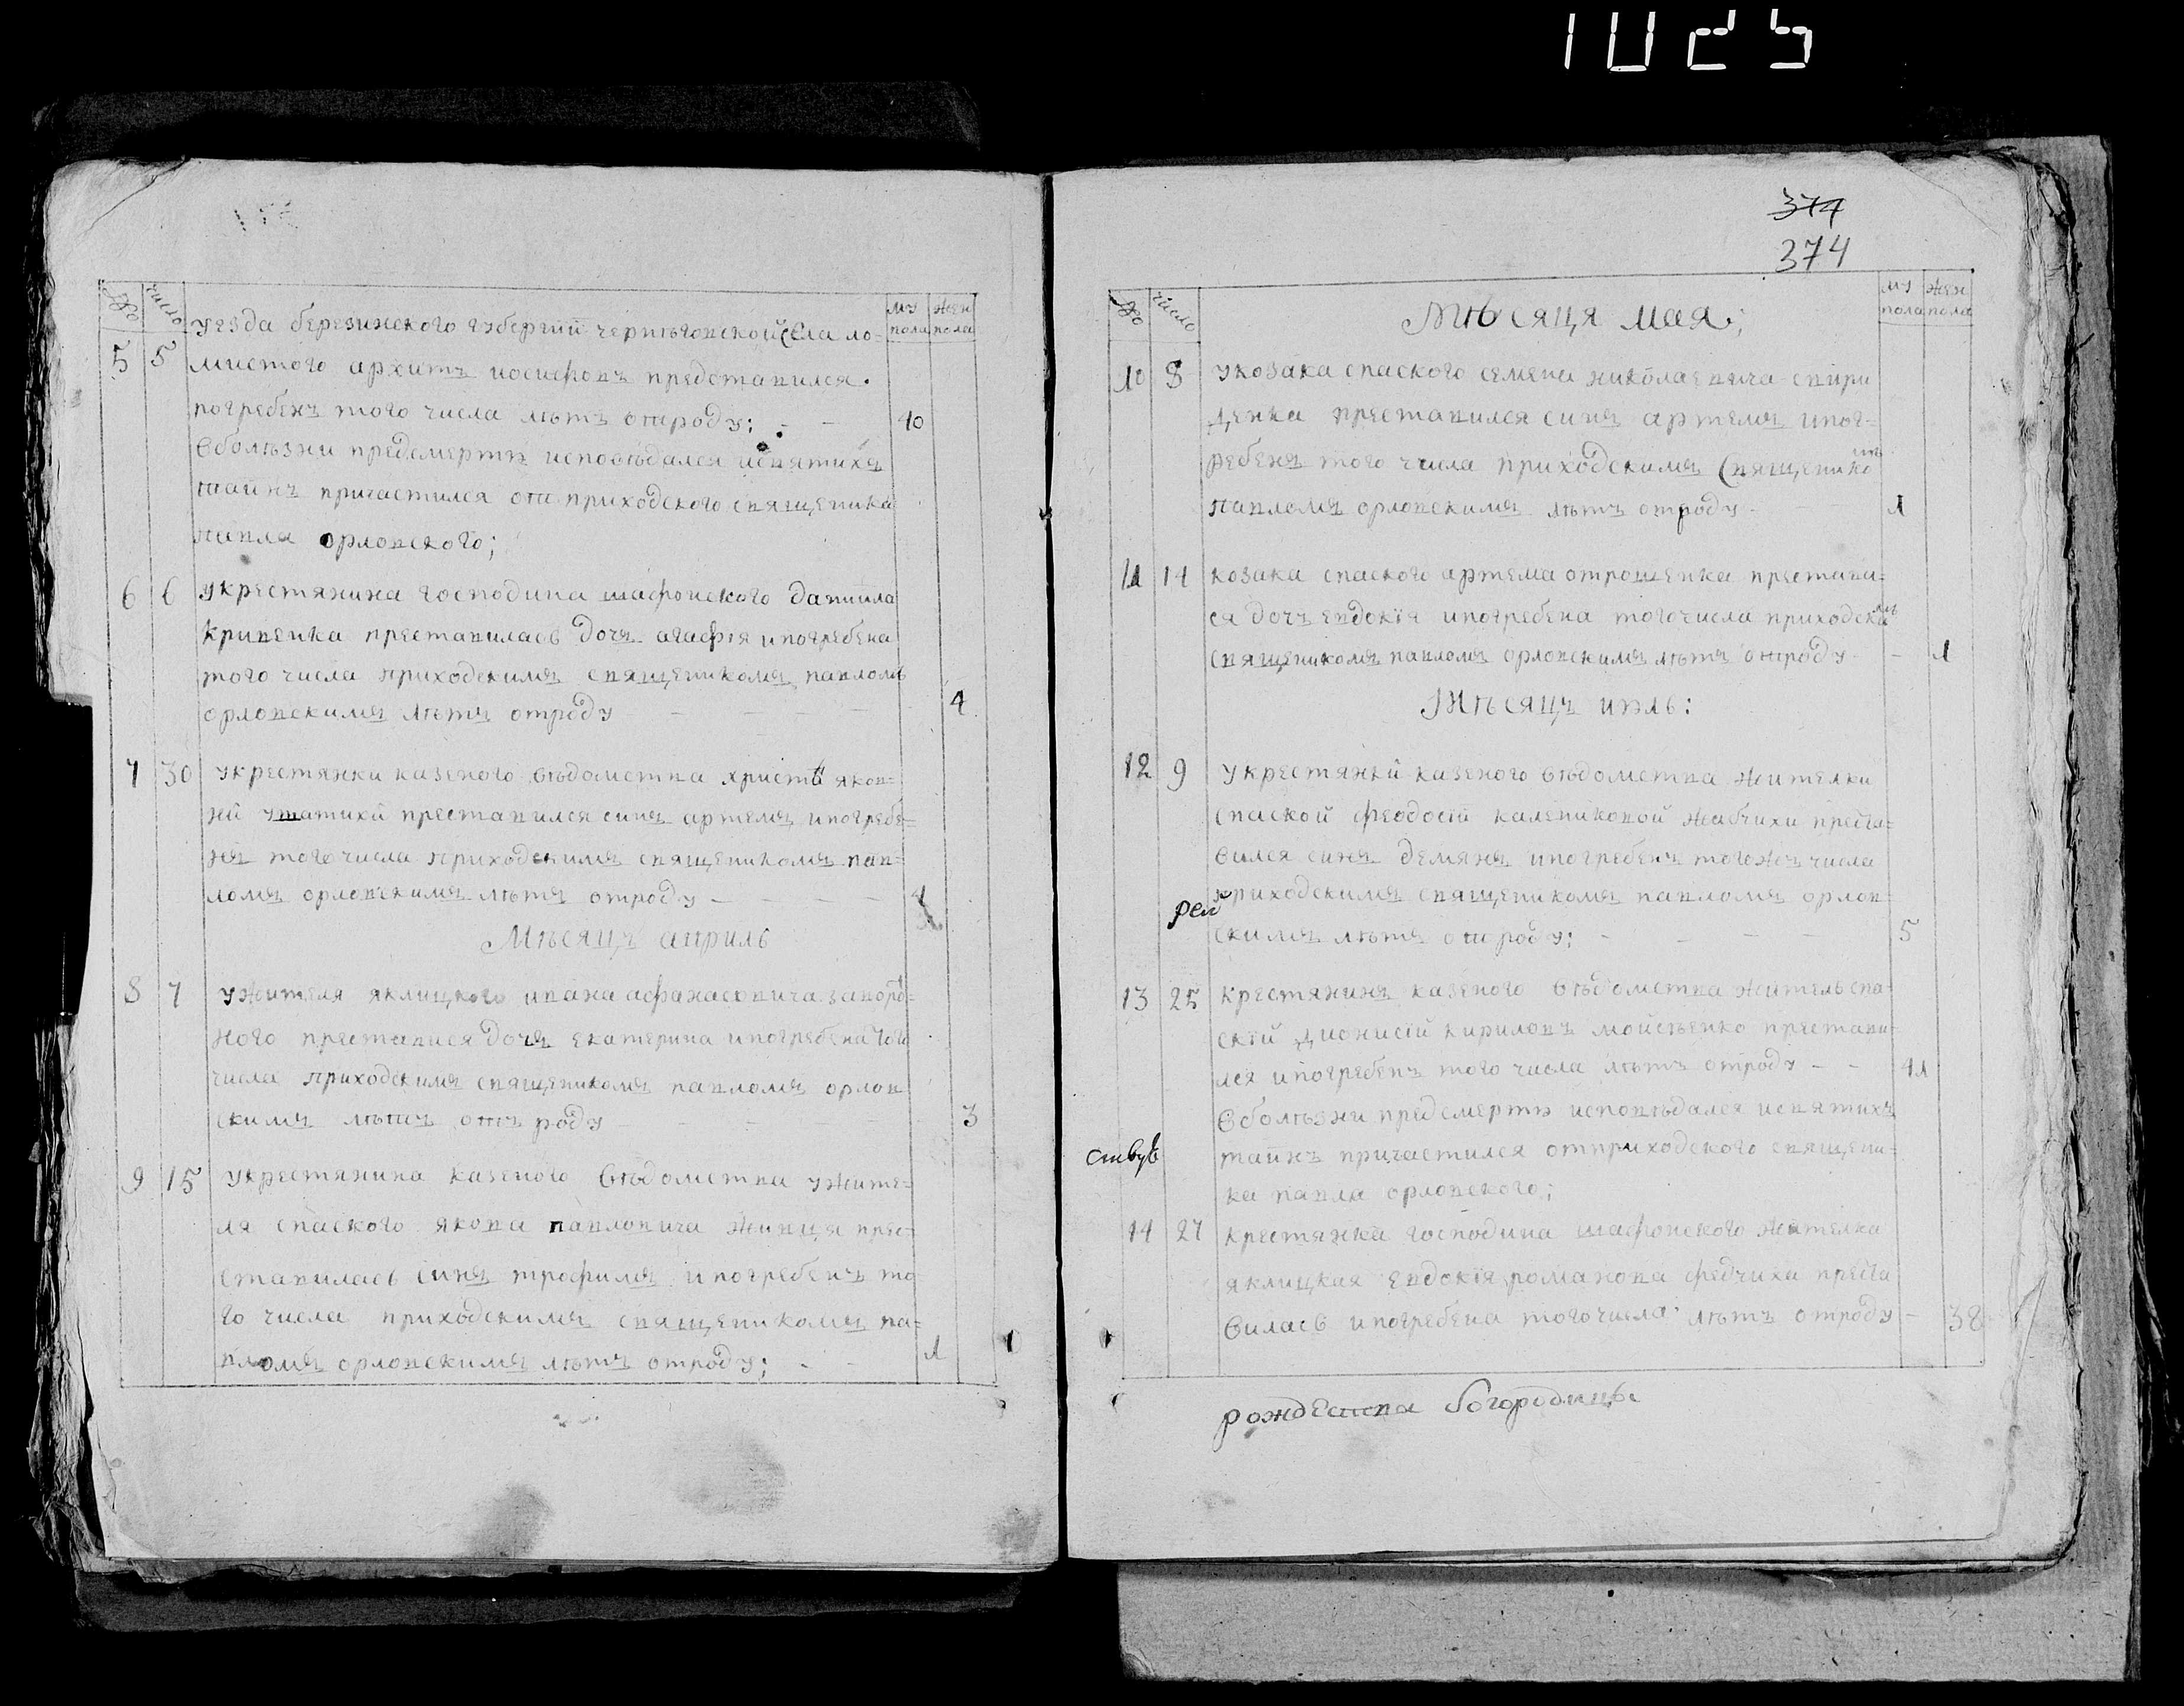 1025
№ число му пола жен пола
уезда березинского губернїи чернѣговской села ло-
5 5 мистого архипъ иосифовъ представился.
погребенъ того числа лѣтъ отроду; - - 40
вболѣзни предсмертю исповѣдался исвятихъ
таинъ причастился от приходского священика
павла орловского;
6 6 укрестянина господина шафонского данїила
кривенка преставилась дочъ агафія ипогребена
того числа приходскимъ священикомъ павломъ
орловскимъ лѣтъ отроду - - - - 4
7 30 укрестянки казеного вѣдомства христї яков-
ни преставился синъ артемъ ипогребе-
нъ того числа приходскимъ священикомъ пав-
ломъ орловскимъ лѣтъ отроду - - - -
Мѣсяцъ априль
8 7 ужителя яклицкого ивана афанасовича запорож-
ного преставися дочъ екатерина ипогребена того
числа приходскимъ священикомъ павломъ орлов
скимъ лѣтъ отъ роду - - - 3
9 15 укрестянина казеного вѣдомства ужите-
ля спаского якова павловича живця прес-
тавилась синъ трофимъ ипогребенъ то
го числа приходскимъ священикомъ па-
вломъ орловскимъ лѣтъ отроду; - - 1
374
374
№ число му пола жен пола
Мѣсяця мая;
10 8 укозака спаского семена николаевича спири
денка преставился синъ артемъ ипог-
ребенъ того числа приходскимъ священикомъ
павломъ орловскимъ лѣтъ отроду - - 1
11 14 козака спаского артема отрошенка престави-
ся дочъ евдокїя ипогребена того числа приходскимъ
священикомъ павломъ орловскимъ лѣтъ отроду - - 1
Мѣсяцъ июль:
12 9 укрестянки казеного вѣдомства жителки
спаской феодосїи калениковой жабчихи преста-
вился синъ демянъ ипогребенъ тогожъ числа
приходскимъ священикомъ павломъ орлов-
рей
скимъ лѣтъ от роду; - - - - 5
13 25 крестянинъ казеного вѣдомства житель спа-
скїй дионисїй кириловъ мойсѣенко престави-
лся ипогребенъ того числа лѣтъ отроду - - 41
вболѣзни предсмертю исповѣдался исвятихъ
ствув
таинъ причастился отприходского священи-
ка павла орловского;
14 27 крестянка господина шафонского жителка
яклицкая евдокїя романова федчиха преста
вилась ипогребена того числа лѣтъ отроду - 38
рождества богородицы